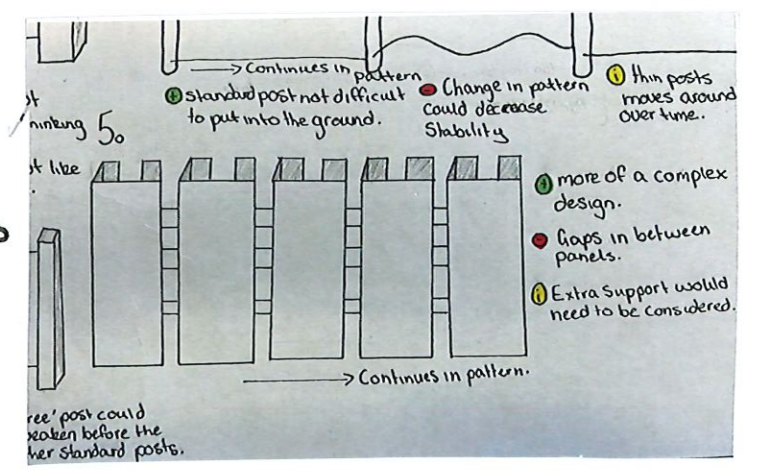 → Continues in pattern
+ standard post not difficult
to put into the ground.
- Change in pattern
could decrease
Stability
i thin posts
moves around
over time.
5.
like
+ more of a complex
design.
- Gaps in between
panels.
i Extra Support would
need to be considered.
→ Continues in pattern.
ree' post could
eaken before the
her standard posts.